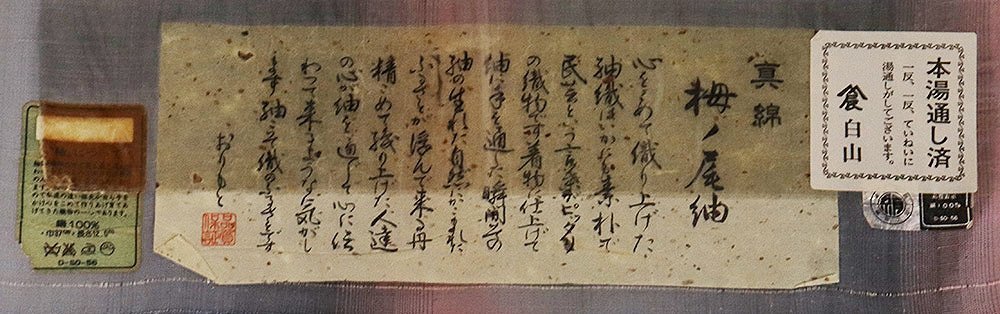 本湯通し済
一反、一反、ていねいに
湯通しがしてございます。
白山
真綿
栂ノ尾紬
心をこめて織り上げた
紬織はいかにも素朴で
民芸という言葉がピッタリ
の織物です着物に仕上げて
紬に手を通した瞬間この
紬の生れた自然にかこまれた
ふるさとが浮んで来る丹
精こめて織り上げた人達
の心が紬を通して心に伝
わって来るような気がし
ます 紬って織のふるさとです
おりもと
あげてきた織物の一つであります。
絹100%
D-SO-56
D-SO-56